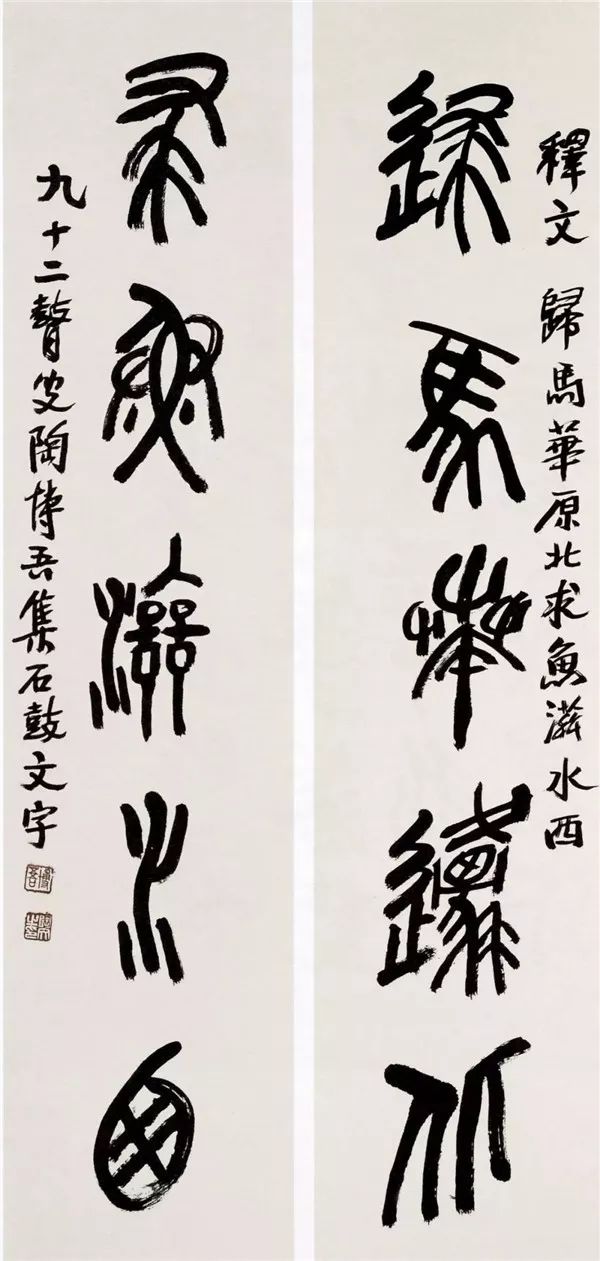 釋文 歸馬華原北求魚滋水西
歸馬華原北
求魚滋水西
九十二瞽叟陶博吾集石鼓文字
博吾